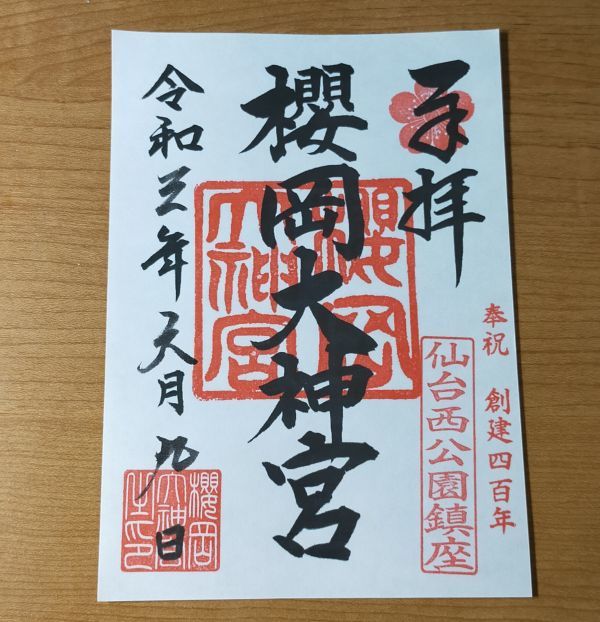 奉拝
奉祝 創建四百年
仙台西公園鎮座
櫻岡大神宮
櫻岡
大神宮
令和三年六月九日
櫻岡
大神宮
之印